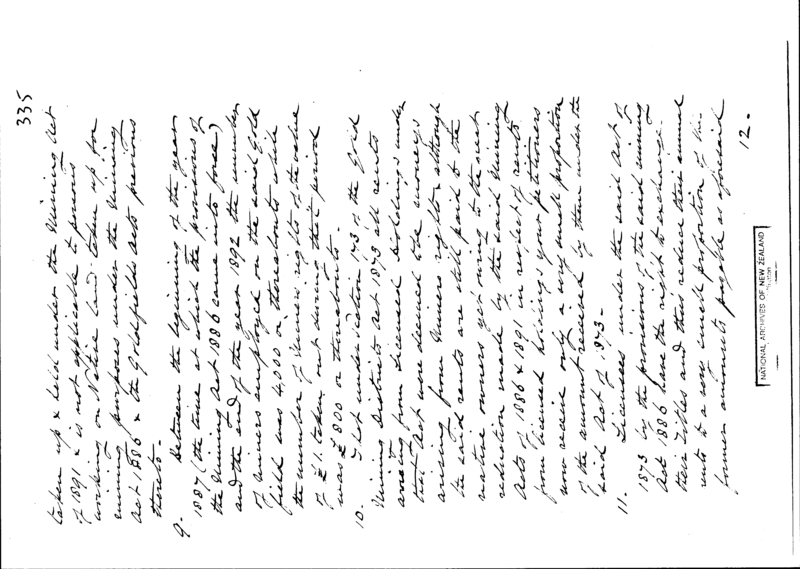 335
taken up & held under the Mining Act
of 1891 & is not applicable to persons
working on Native Land taken up for
mining purposes under the Mining
Act 1886 & the Goldfields Acts previous
thereto.
9. Between the beginning of the year
1887 (the time at which the provisions of
the Mining Act 1886 came into force)
and the end of the year 1892 the number
of Miners employed on the said Gold
field was 4,000 or thereabouts while
the number of Miners rights of the value
of £1. taken out during that period
was £800 or thereabouts.
10. That under section 143 of the Gold
Mining Districts Act 1873 all rents
arising from licensed holdings under
that Act were deemed to be moneys
arising from Miners rights & although
the said rents are still paid to the
native owners yet owing to the rent
reduction made by the said Mining
Acts of 1886 & 1891 in respect of rents
from licensed holdings your petitioners
now receive only a very small proportion
of the amount received by them under the
said Act of 1873.
11. Licensees under the said Act of
1873 by the provisions of the said Mining
Act 1886 have the right to exchange
their titles and thus reduce their annual
rents to a very small proportion of the
former amounts payable as aforesaid
12.
NATIONAL ARCHIVES OF NEW ZEALAND